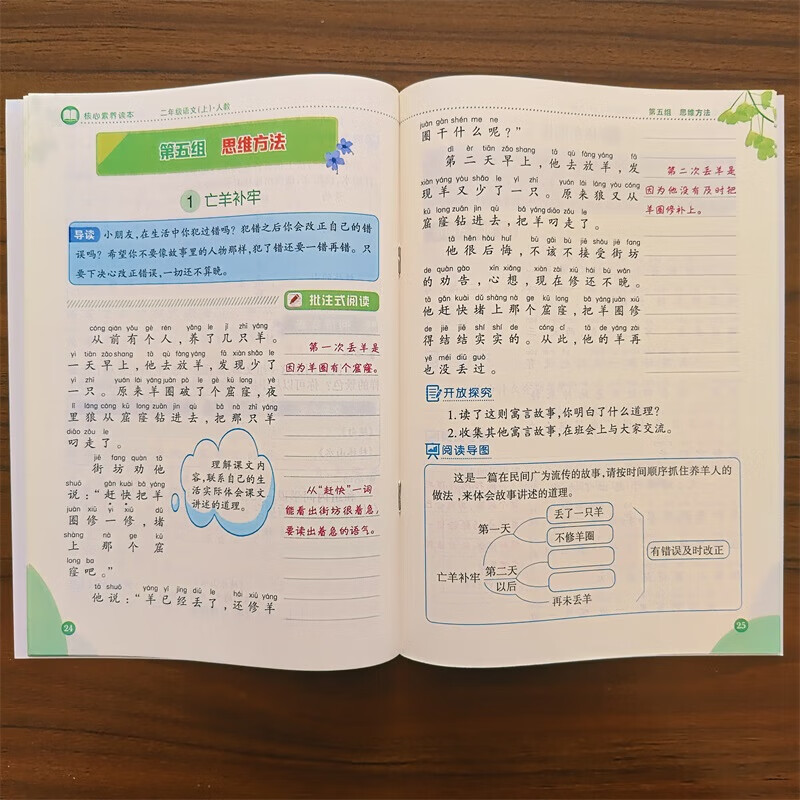 核心素养读本
二年级语文(上)·人教
第五组 思维方法
1 亡羊补牢
导读 小朋友,在生活中你犯过错吗?犯错之后你会改正自己的错
误吗?希望你不要像故事里的人物那样,犯了错还要一错再错。只
要下决心改正错误,一切还不算晚。
批注式阅读
cóng qián yǒu gè rén yǎng le jǐ zhī yáng
从前有个人,养了几只羊。
yì tiān zǎo shang tā qù fàng yáng fā xiàn shǎo le
一天早上,他去放羊,发现少了
yì zhī yuán lái yáng juàn pò le gè kū long yè
一只。原来羊圈破了个窟窿,夜
li láng cóng kū long zuān jìn qù bǎ nà zhī yáng
里狼从窟窿钻进去,把那只羊
diāo zǒu le
叼走了。
jiē fang quàn tā
街坊劝他
shuō gǎn kuài bǎ yáng
说:“赶快把羊
juàn xiū yì xiū dǔ
圈修一修,堵
shàng nà ge kū
上那个窟
long ba
窿吧。”
tā shuō yáng yǐ jīng diū le hái xiū yáng
他说:“羊已经丢了,还修羊
第一次丢羊是
因为羊圈有个窟窿。
理解课文内
容,联系自己的生
活实际体会课文
讲述的道理。
从“赶快”一词
能看出街坊很着急,
要读出着急的语气。
24
第五组 思维方法
juàn gàn shén me ne
圈干什么呢?”
dì èr tiān zǎo shang tā qù fàng yáng fā
第二天早上,他去放羊,发
xiàn yáng yòu shǎo le yì zhī yuán lái láng yòu cóng
现羊又少了一只。原来狼又从
kū long zuān jìn qù bǎ yáng diāo zǒu le
窟窿钻进去,把羊叼走了。
tā hěn hòu huǐ bù gāi bù jiē shòu jiē fang
他很后悔,不该不接受街坊
de quàn gào xīn xiǎng xiàn zài xiū hái bù wǎn
的劝告,心想,现在修还不晚。
tā gǎn kuài dǔ shàng nà ge kū long bǎ yáng juàn xiū
他赶快堵上那个窟窿,把羊圈修
de jiē jiē shí shí de cóng cǐ tā de yáng zài
得结结实实的。从此,他的羊再
yě méi diū guo
也没丢过。
第二次丢羊是
因为他没有及时把
羊圈修补上。
开放探究
1.读了这则寓言故事,你明白了什么道理?
2.收集其他寓言故事,在班会上与大家交流。
阅读导图
这是一篇在民间广为流传的故事,请按时间顺序抓住养羊人的
做法,来体会故事讲述的道理。
亡羊补牢
第一天
丢了一只羊
不修羊圈
第二天
以后
再未丢羊
有错误及时改正
25